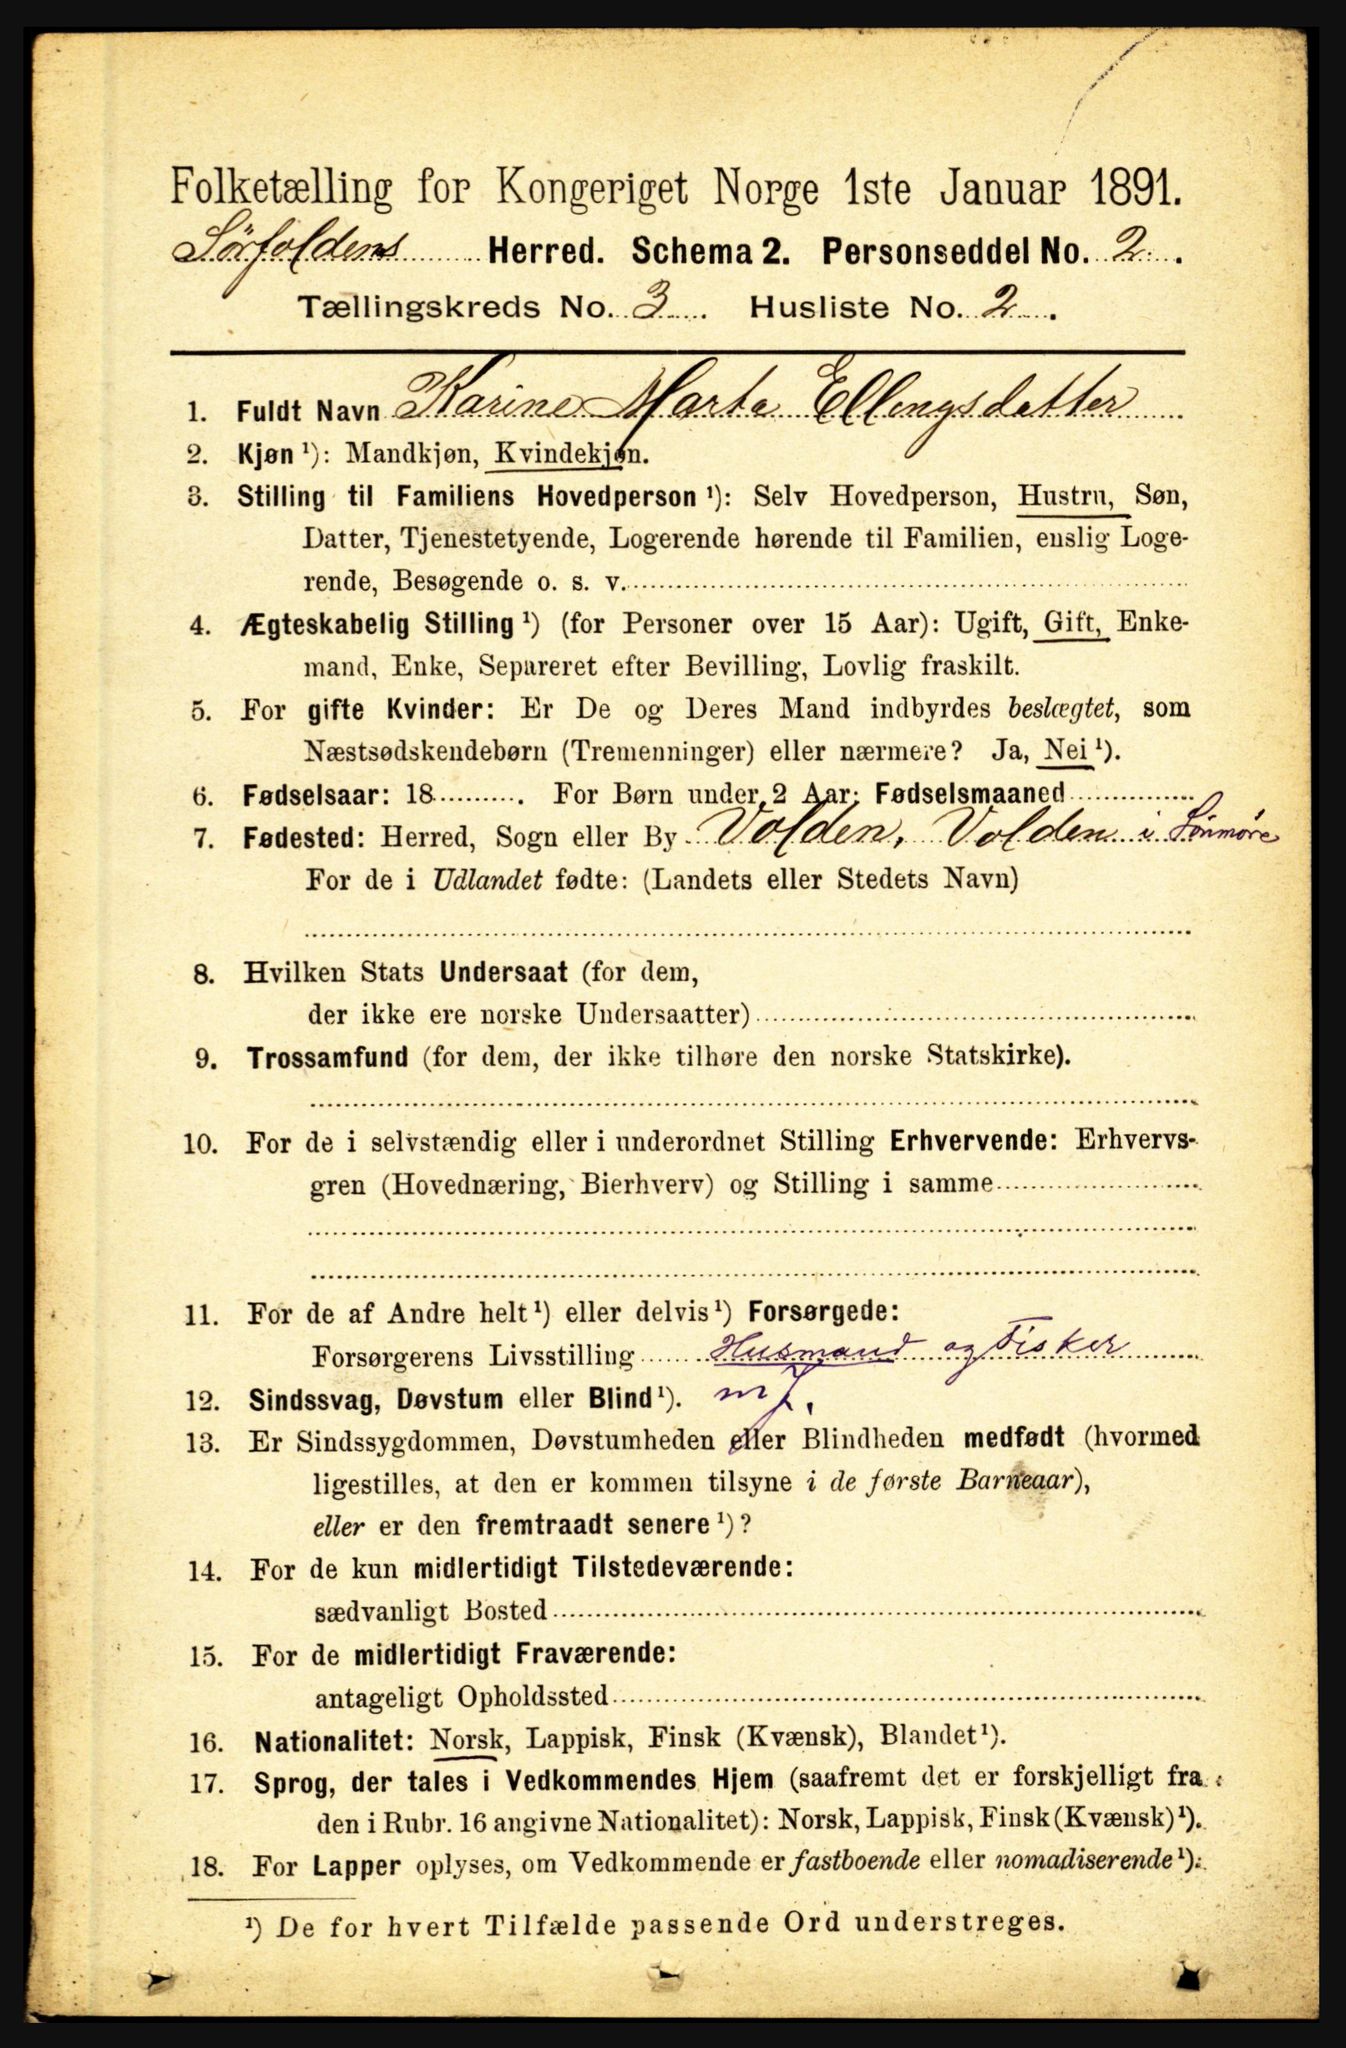 Folketælling for Kongeriget Norge 1ste Januar 1891.
Sørfoldens Herred. Schema 2. Personseddel No. 2.
Tællingskreds No. 3. Husliste No. 2.
1. Fuldt Navn Karine Marta Ellingsdatter
2. Kjøn ¹): Mandkjøn, Kvindekjøn.
3. Stilling til Familiens Hovedperson ¹): Selv Hovedperson, Hustru, Søn,
Datter, Tjenestetyende, Logerende hørende til Familien, enslig Loge-
rende, Besøgende o. s. v.
4. Ægteskabelig Stilling ¹) (for Personer over 15 Aar): Ugift, Gift, Enke-
mand, Enke, Separeret efter Bevilling, Lovlig fraskilt.
5. For gifte Kvinder: Er De og Deres Mand indbyrdes beslægtet, som
Næstsødskendebørn (Tremenninger) eller nærmere? Ja, Nei ¹).
6. Fødselsaar: 18 . For Børn under 2 Aar: Fødselsmaaned
7. Fødested: Herred, Sogn eller By Volden, Volden i Sønmøre
For de i Udlandet fødte: (Landets eller Stedets Navn)
8. Hvilken Stats Undersaat (for dem,
der ikke ere norske Undersaatter)
9. Trossamfund (for dem, der ikke tilhøre den norske Statskirke).
10. For de i selvstændig eller i underordnet Stilling Erhvervende: Erhvervs-
gren (Hovednæring, Bierhverv) og Stilling i samme
11. For de af Andre helt ¹) eller delvis ¹) Forsørgede:
Forsørgerens Livsstilling Husmand og Fisker
12. Sindssvag, Døvstum eller Blind ¹).
13. Er Sindssygdommen, Døvstumheden eller Blindheden medfødt (hvormed
ligestilles, at den er kommen tilsyne i de første Barneaar),
eller er den fremtraadt senere ¹)?
14. For de kun midlertidigt Tilstedeværende:
sædvanligt Bosted
15. For de midlertidigt Fraværende:
antageligt Opholdssted
16. Nationalitet: Norsk, Lappisk, Finsk (Kvænsk), Blandet ¹).
17. Sprog, der tales i Vedkommendes Hjem (saafremt det er forskjelligt fra
den i Rubr. 16 angivne Nationalitet): Norsk, Lappisk, Finsk (Kvænsk) ¹).
18. For Lapper oplyses, om Vedkommende er fastboende eller nomadiserende ¹).
¹) De for hvert Tilfælde passende Ord understreges.